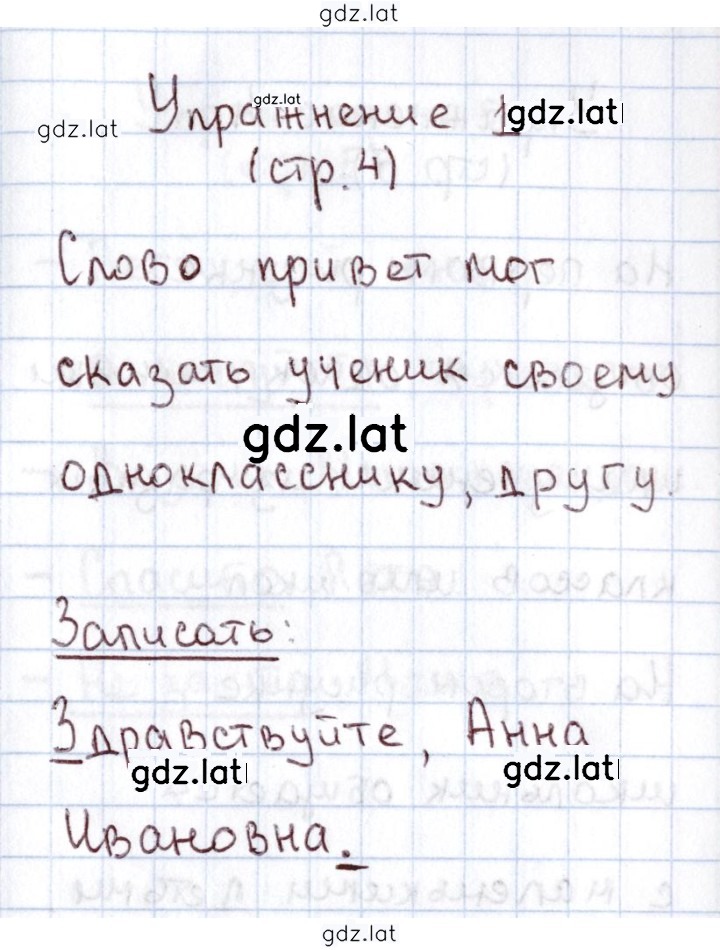 gdz.lat
gdz.lat
Упражнение 1
gdz.lat
gdz.lat
(стр. 4)
Слово привет мог
сказать ученик своему
gdz.lat
однокласснику, другу.
Записать:
Здравствуйте, Анна
gdz.lat
gdz.lat
Ивановна.
gdz.lat